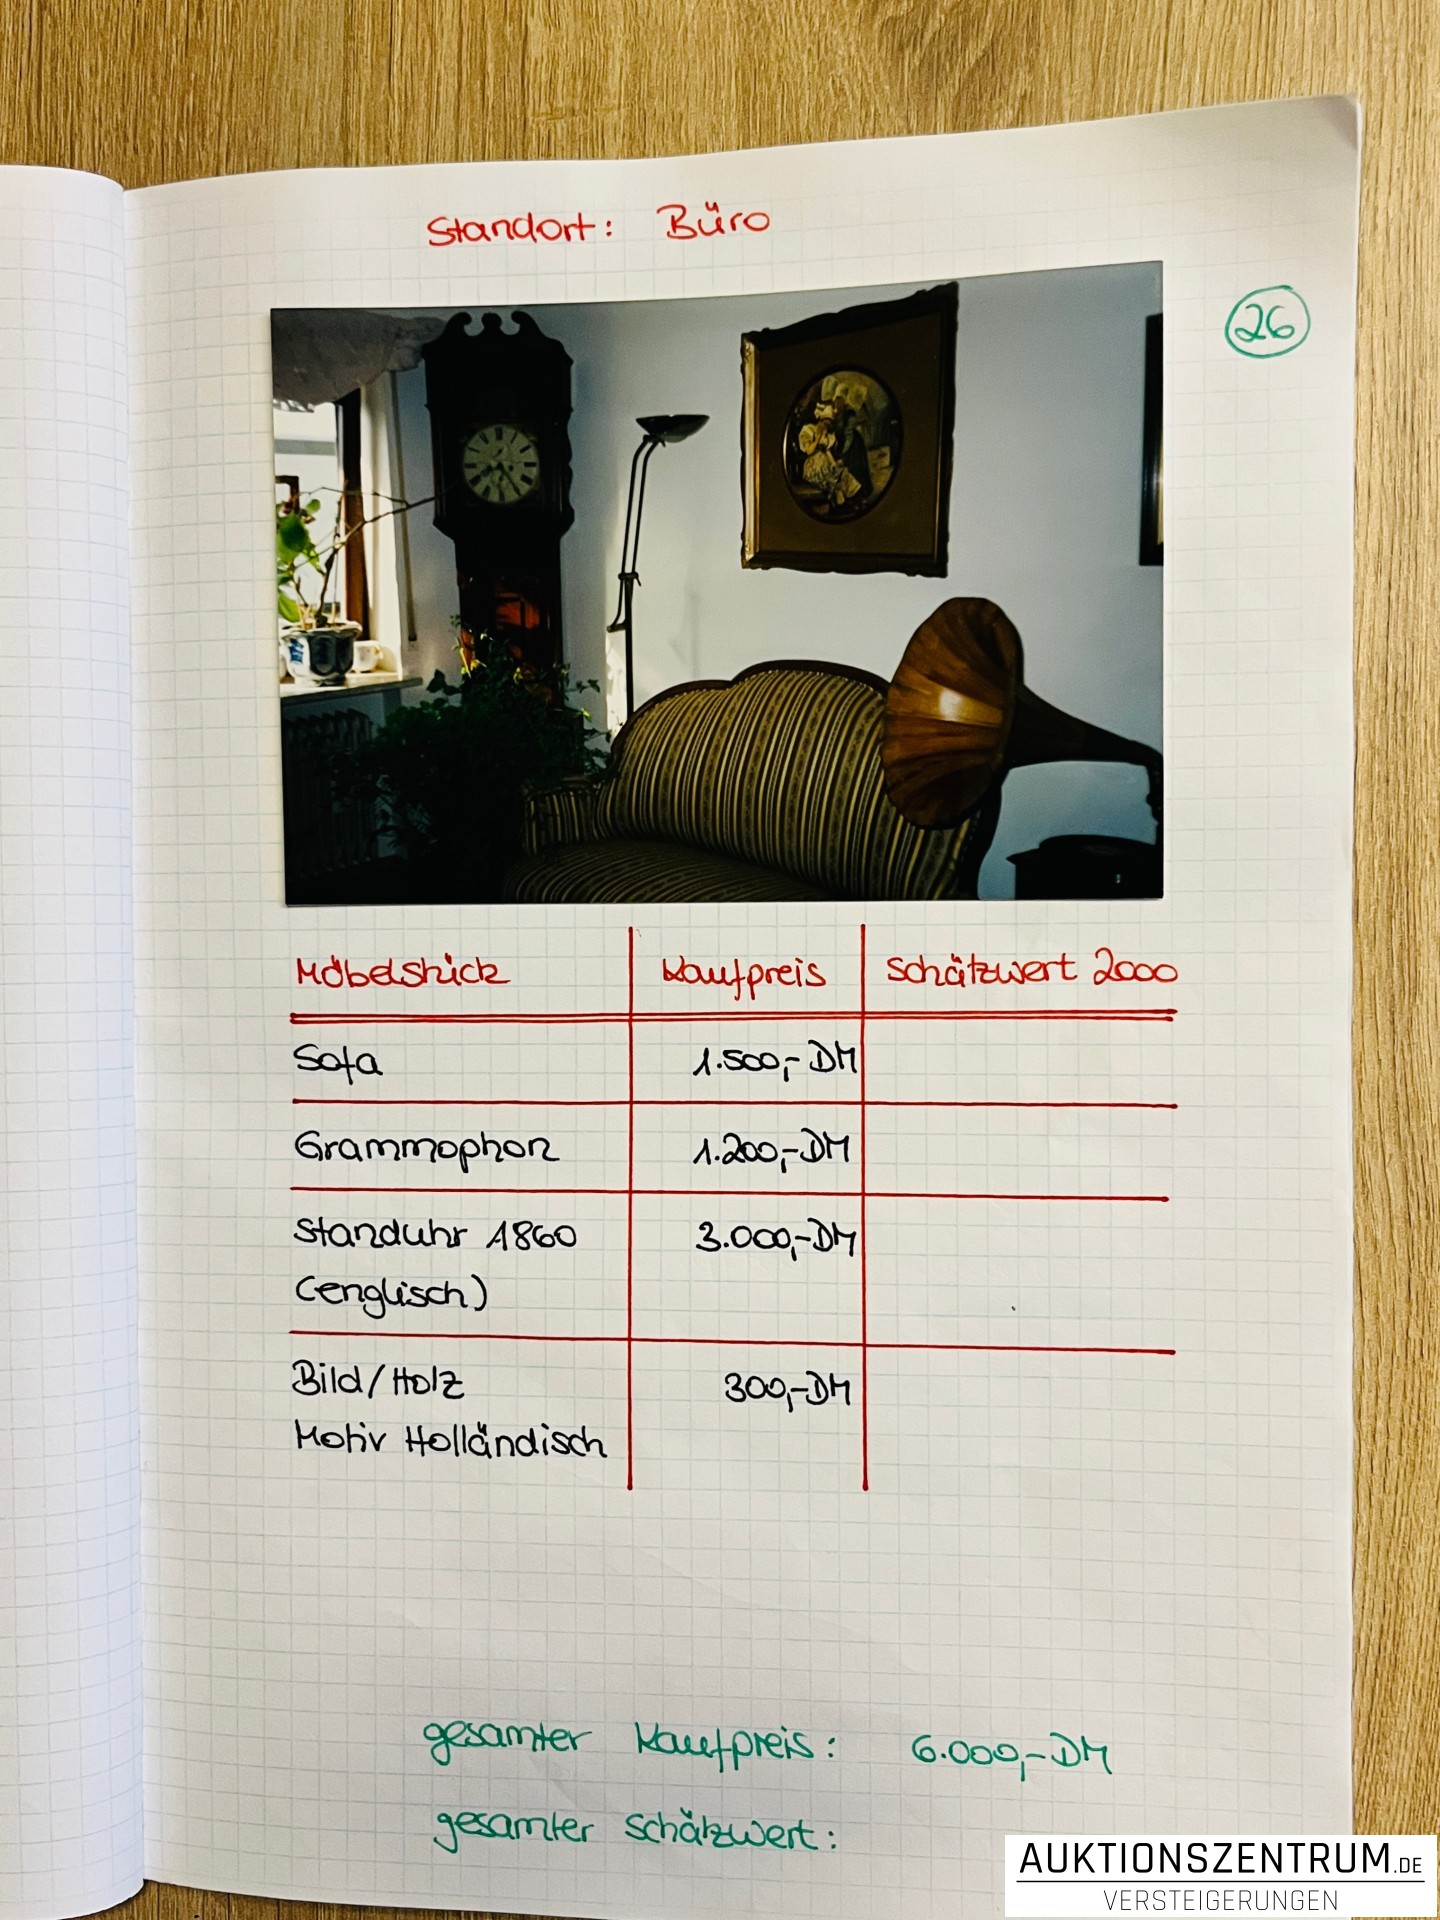 Standort: Büro
26
Möbelstück Kaufpreis Schätzwert 2000
Sofa 1.500,- DM
Grammophon 1.200,- DM
Standuhr 1860 3.000,- DM
(englisch)
Bild/Holz 300,- DM
Motiv Holländisch
gesamter Kaufpreis: 6.000,- DM
gesamter Schätzwert:
AUKTIONSZENTRUM.DE
VERSTEIGERUNGEN